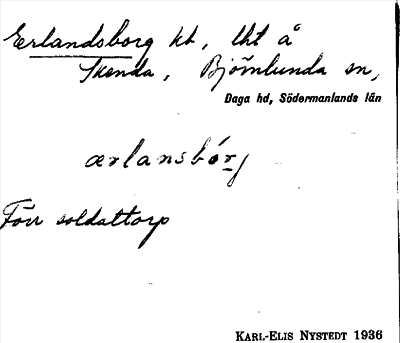 Erlandsborg ht, lht å
Skenda, Björnlunda sn,
Daga hd, Södermanlands län
ærlansbórj
Förr soldattorp
KARL-ELIS NYSTEDT 1936